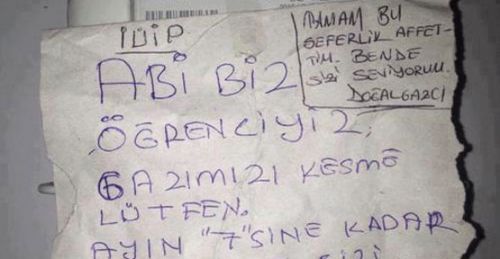 İDİP
ABİ BİZ
ÖĞRENCİYİZ,
GAZIMIZI KESME
LÜTFEN.
AYIN "7"SİNE KADAR
BİNAM BU
SEFERLİK AFFET-
TİM. BENDE
SİZİ SEVİYORUM.
DOĞALGAZCI